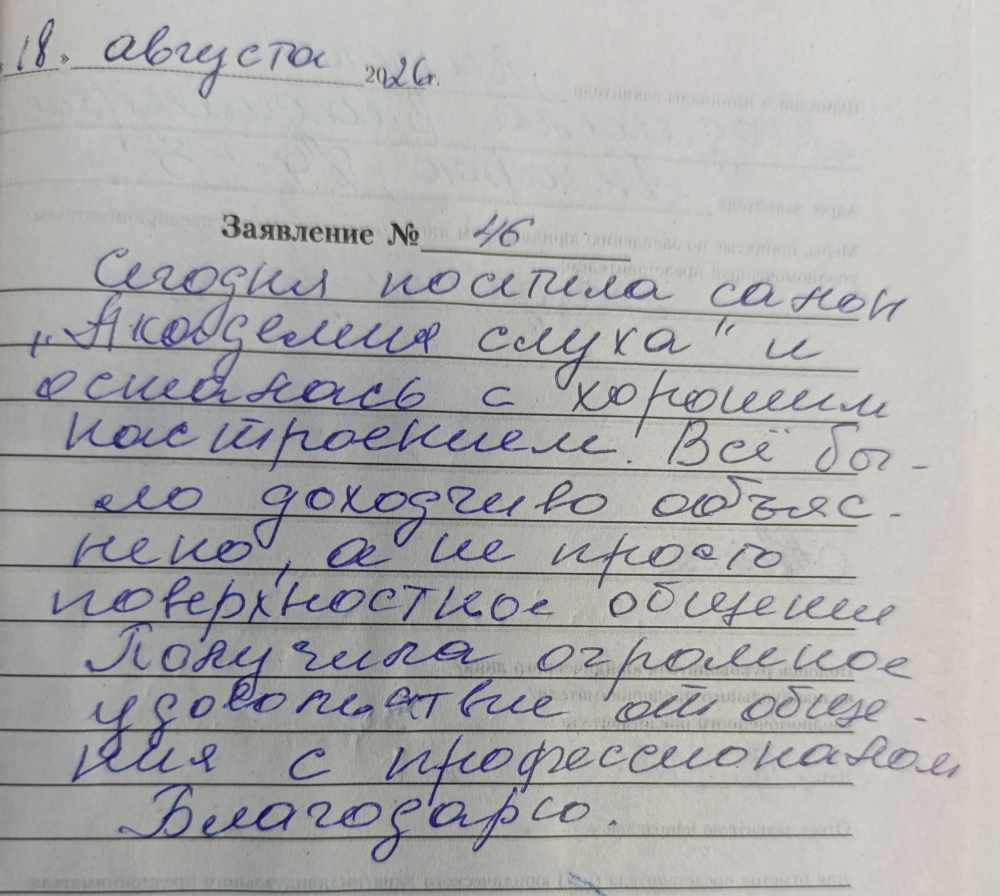 „18" августа 2026г.
Заявление № 46
Сегодня посетила салон
„Академия слуха" и
осталась с хорошим
настроением. Всё бы-
ло доходчиво объяс-
нено, а не просто
поверхностное общение
Получила огромное
удовольствие от обще-
ния с профессионалом
Благодарю.